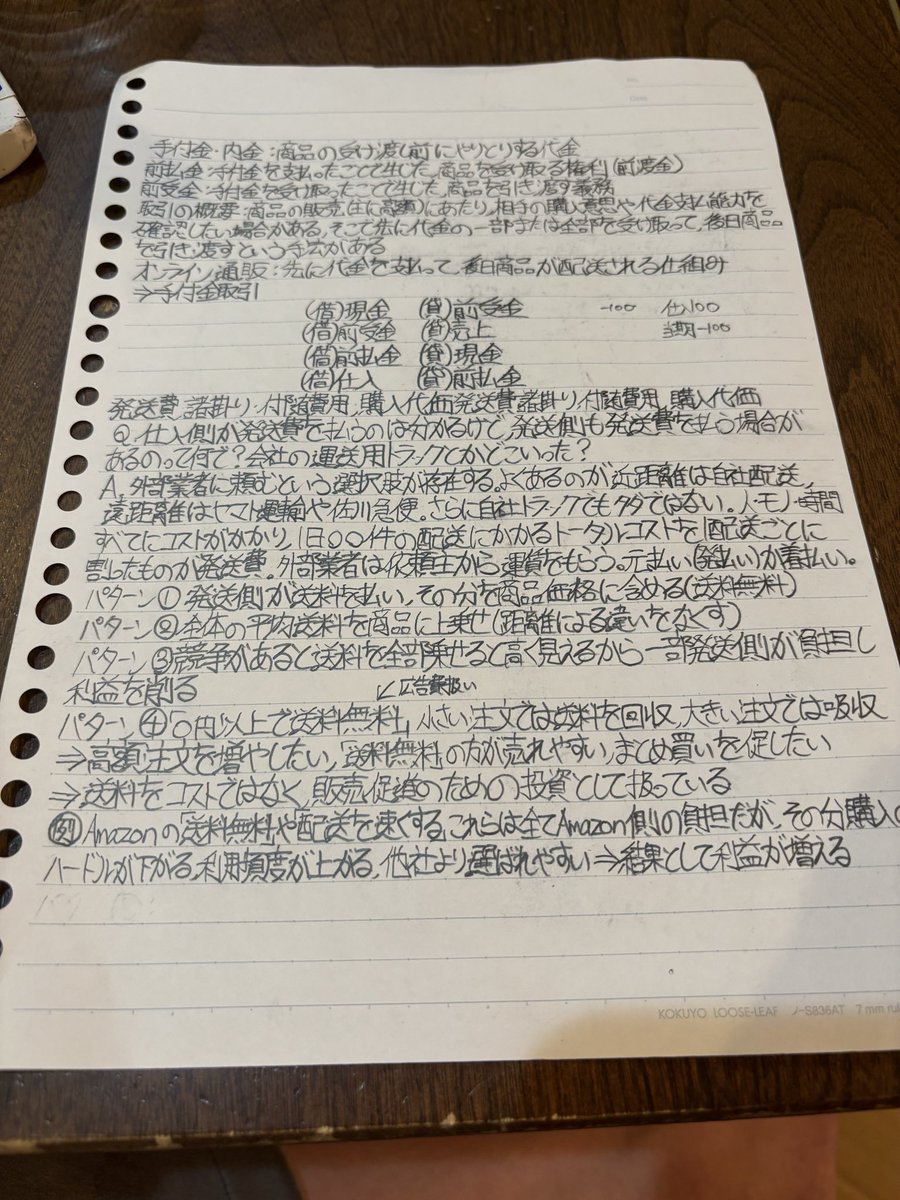 手付金・内金：商品の受け渡し前にやりとりする代金
前払金：手付金を支払ったことで生じた、商品を受け取る権利(前渡金)
前受金：手付金を受け取ったことで生じた、商品を引き渡す義務
取引の概要：商品の販売(主に高額)にあたり、相手の購入意思や代金支払い能力を
確認したい場合がある。そこで先に代金の一部または全部を受け取って、後日商品
を引き渡すという方法がある
オンライン通販：先に代金を支払って、後日商品が配送される仕組み
⇒手付金取引
(借)現金 (貸)前受金 -100 仕100
(借)前受金 (貸)売上 当期-100
(借)前払金 (貸)現金
(借)仕入 (貸)前払金
発送費、諸掛り、付随費用、購入代価発送費、諸掛り、付随費用、購入代価
Q、仕入側が発送費を払うのは分かるけど、発送側も発送費を払う場合が
あるのって何で？会社の運送用トラックとかどこいった？
A、外部業者に頼むという選択肢が存在する。よくあるのが近距離は自社配送、
遠距離はヤマト運輸や佐川急便。さらに自社トラックでもタダではない。人・モノ・時間
すべてにコストがかかり、1日〇〇件の配送にかかるトータルコストを1配送ごとに
割したものが発送費。外部業者は依頼主から運賃をもらう。元払い(発払い)か着払い。
パターン①発送側が送料を払い、その分を商品価格に含める(送料無料)
パターン②全体の平均送料を商品に上乗せ(距離による違いをなくす)
パターン③競争があると送料を全部乗せると高く見えるから一部発送側が負担し
利益を削る ↙広告費扱い
パターン④「〇円以上で送料無料」小さい注文では送料を回収、大きい注文では吸収
⇒高額注文を増やしたい、「送料無料」の方が売れやすい、まとめ買いを促したい
⇒送料をコストではなく、販売促進のための投資として扱っている
例Amazonの「送料無料」や配送を速くする。これらは全てAmazon側の負担だが、その分購入の
ハードルが下がる、利用頻度が上がる、他社より選ばれやすい⇒結果として利益が増える
KOKUYO LOOSE-LEAF ノ-S836AT 7 mm rul